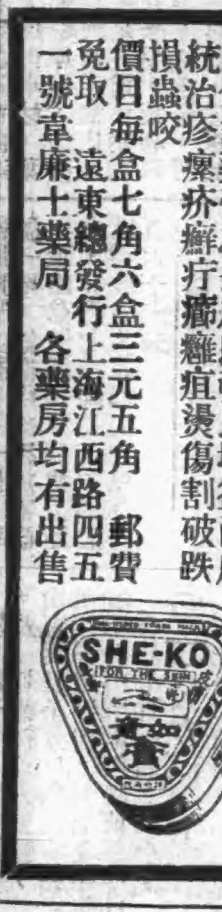 統治疹瘰疥癬疔癤癰疽燙傷割破跌
損蟲咬
價目每盒七角六盒三元五角 郵費
免取 遠東總發行上海江西路四五
一號韋廉士藥局 各藥房均有出售
SHE-KO
FOR THE SKIN
如意膏